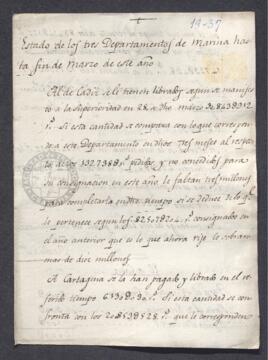 19-37
Estado de los tres Departamentos de Marina has
ta fin de Marzo de este año
Al de Cadiz se le tienen librados segun se manifes
to a la Superioridad en 28 de dho marzo
Si esta cantidad se compara con lo que correspon
de a este Departamento en dhos tres meses al respec
to de los pedidos, y no concedidos para
su consignacion en este año le faltan tres millones
para completarla en dho tiempo si se deduce de lo que
le pertenece segun los consignados en
el año anterior que es lo que ahora rije le sobran
mas de diez millones
A Cartagena se la han pagado y librado en el re
ferido tiempo Si esta cantidad se con
fronta con los que le corresponden